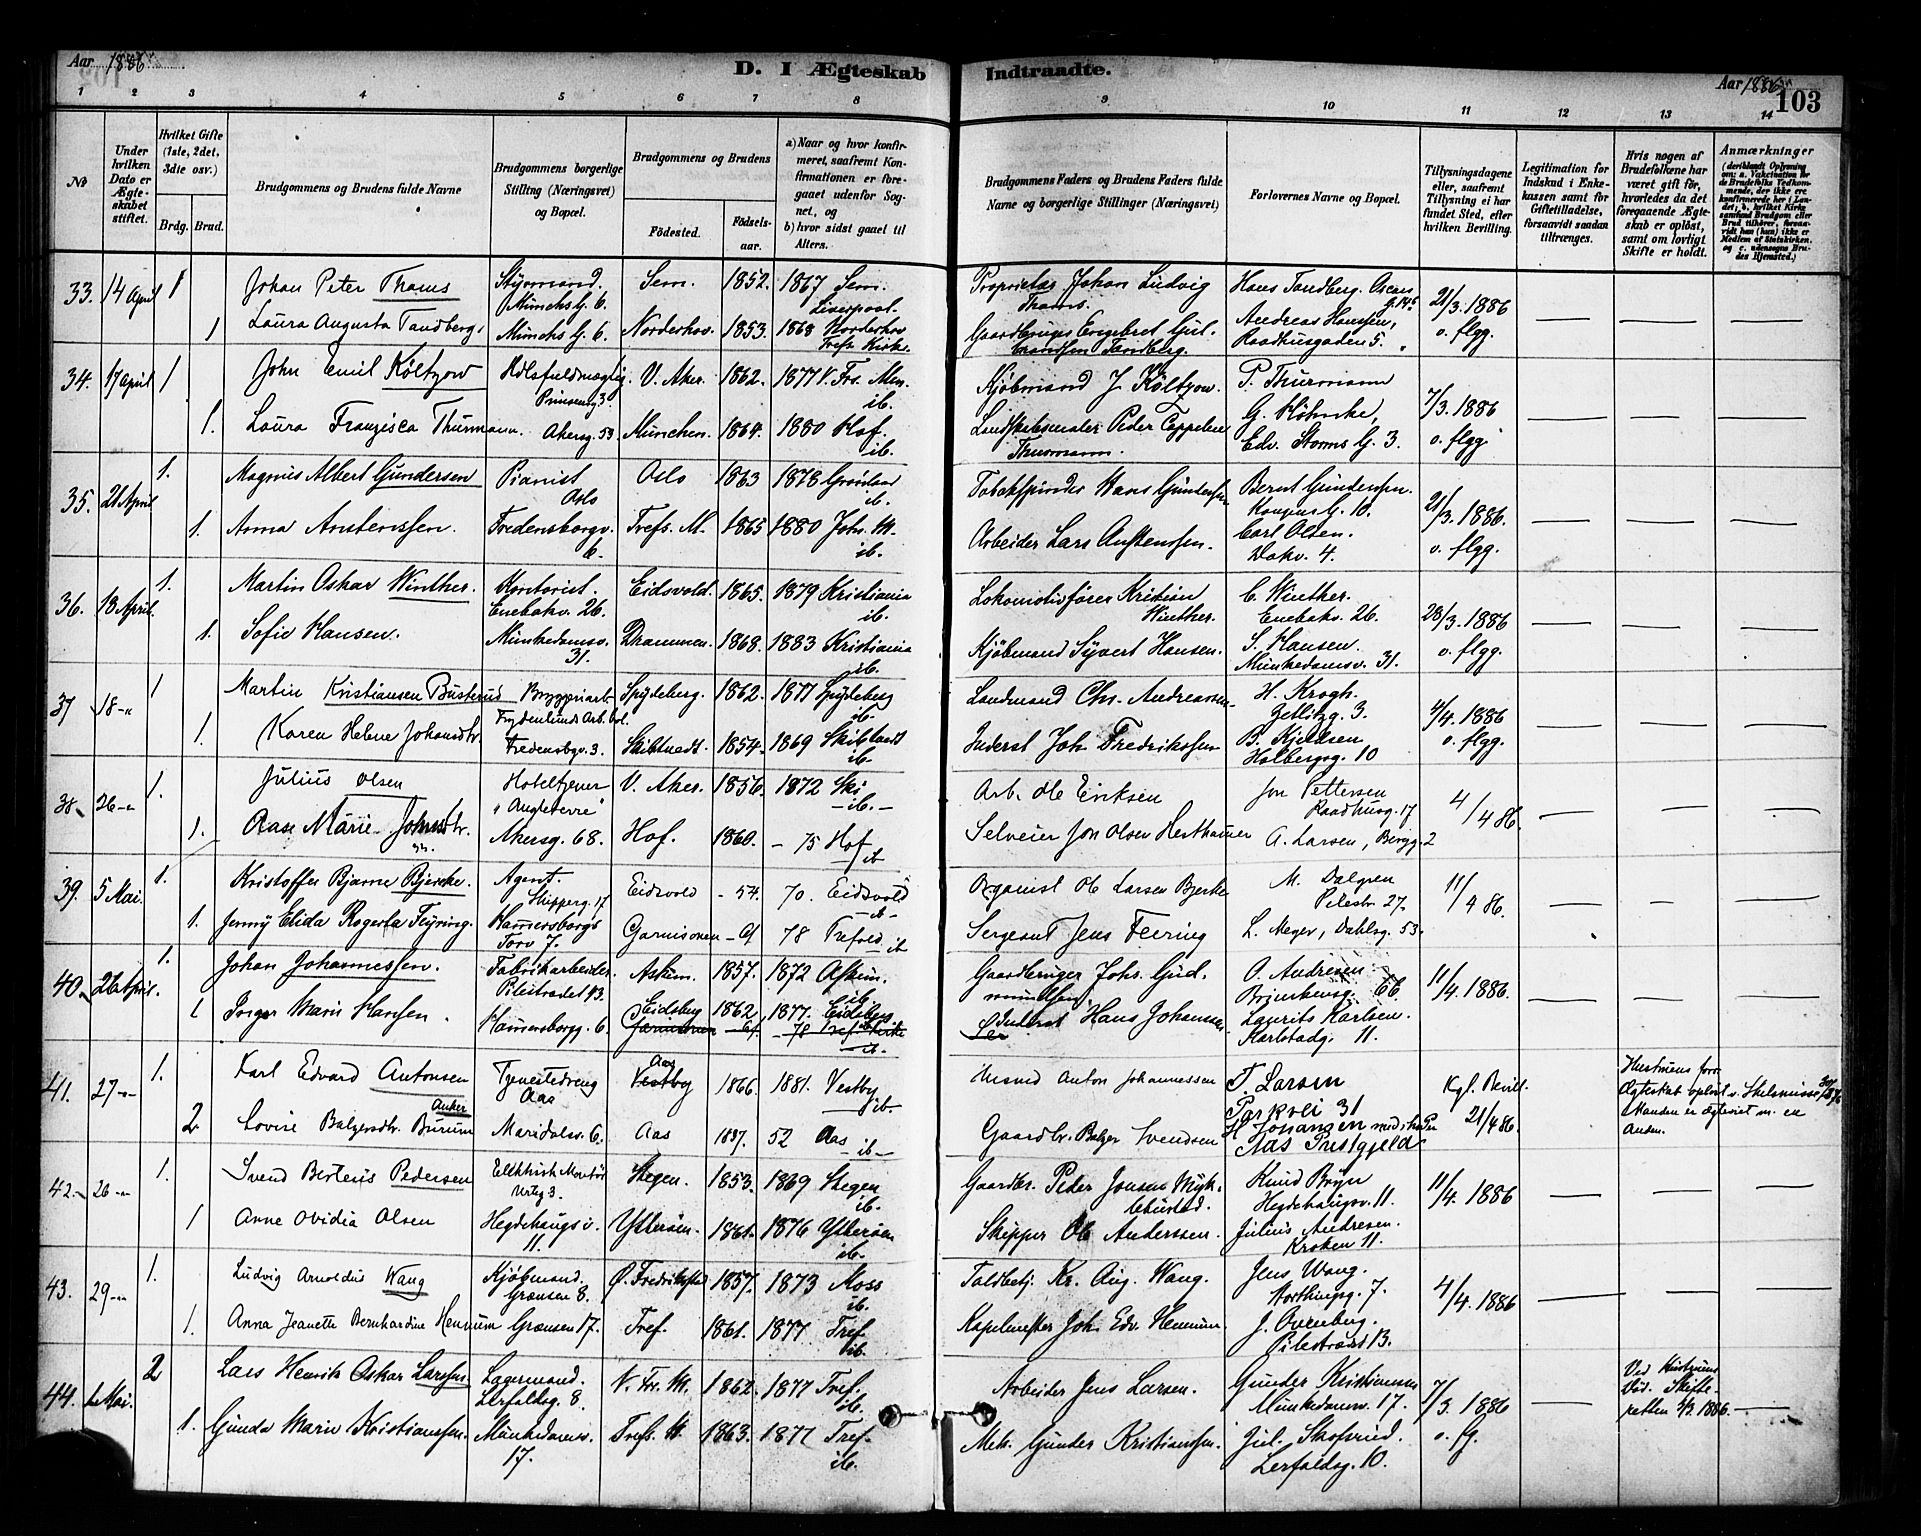 Aar 1886.
D. I Ægteskab Indtraadte.
Aar 1886.
103
1 2 3 4 5 6 7 8 9 10 11 12 13 14
No
Under hvilken Dato er Ægteskabet stiftet.
Hvilket Gifte (1ste, 2det, 3die osv.)
Brdg. Brud.
Brudgommens og Brudens fulde Navne
Brudgommens borgerlige Stilling (Næringsvei) og Bopæl.
Brudgommens og Brudens
Fødested. Fødselsaar.
a) Naar og hvor konfirmeret, saafremt Konfirmationen er foregaaet udenfor Sognet, og
b) hvor sidst gaaet til Alters.
Brudgommens Faders og Brudens Faders fulde Navne og borgerlige Stillinger (Næringsvei)
Forlovernes Navne og Bopæl.
Tillysningsdagene eller, saafremt Tillysning ei har fundet Sted, efter hvilken Bevilling.
Legitimation for Indskud i Enkekassen samt for Giftetilladelse, forsaavidt saadan tiltrænges.
Hvis nogen af Brudefolkene har været gift før, hvorledes da det foregaaende Ægteskab er opløst, samt om lovligt Skifte er holdt.
Anmærkninger
33. 14 April 1 Johan Peter Thams Styrmand. Munchs G. 6. Sem. 1852. 1867 Sem. Liverpool. Proprietær Johan Ludvig Thams. Hans Tandberg. Oscars G. 14 21/3. 1886 o. flgg. — — —
1 Laura Augusta Tandberg. Munchs G. 6. Norderhov. 1853. 1868 Norderhov Trefs Kirke. Gaardbruger Engebret Gulbrandsen Tandberg. Andreas Hanssen, Raadhusgaden 5.
34. 17 April 1 John Emil Költzow Prinsensg 3. V. Aker. 1862. 1877 V. Frs. Men. ib. Kjøbmand J. Költzow. P. Thurmann 7/3. 1886 o. flgg. — — —
1. Laura Franzisca Thurmann. Akersg. 53. München. 1864. 1880 Hof. ib. Landskabsmaler Peder Cappelen Thurmann. G. Köhncke, Edv. Storms G. 3.
35. 21 April 1. Magnus Albert Gundersen Pianist Oslo Oslo 1863 1878 Grønland ib. Tobakspinder Hans Gundersen Bernt Gundersen. Kongens G. 10. 21/3. 1886. o. flgg. — — —
1. Anna Anstenssen. Fredensborgv. 6. Trefs. M. 1865 1880 Joh. M. ib. Arbeider Lars Anstenssen. Carl Olsen. Wakv. 4.
36. 18 April. 1. Martin Oskar Winther. Kontorist. Enebakv. 26. Eidsvold. 1865. 1879 Kristiania ib. Lokomotivfører Kristian Winther. C. Winther. Enebakv. 26. 28/3. 1886 o. flgg. — — —
1. Sofie Hansen. Munkedamsv. 31. Drammen. 1868. 1883 Kristiania ib. Kjøbmand Syvert Hansen. S. Hansen. Munkedamsv. 31.
37 18-" 1 Martin Kristiansen Busterud Bryggeriarb. Frydenlunds Arb. bol. Spydeberg. 1862. 1877 Spydeberg ib. Landmand Chr. Andreassen H. Krogh. Geblitzg. 3. 4/4. 1886 o. flgg. — — —
1. Karen Helene Johansdtr. Fredensbgv. 3. Skibtvedt. 1854. 1869 Skibtvedt ib. Inderst Joh. Fredrikssen B. Kjeldsen Holbergsg. 10
38. 26-" 1. Julius Olsen Hoteltjener "Angleterre" V. Aker. 1856. 1872 Ski — ib. — Arb. Ole Eriksen Jon Pettersen Raadhusg. 17 4/4 86. — — —
1. Aase Marie Johnsdtr. Akersg. 68. Hof. 1860. — 75 Hof ib Selveier Jon Olsen A. Larsen, Bergg. 2
39. 5 Mai. 1. Kristoffer Bjarne Bjerke. Agent. Skipperg. 17 Eidsvold — 54. 70. Eidsvold — ib — Organist Ole Larsen Bjerke M. Dalgren Pilestr. 27. 11/4 86. — — —
1. Jenny Elida Rogerta Feyring. Hammersborgs Torv 7. Garnisonen 78 Trefold. ib Sergeant Jens Feering L. Meyer, Dahlsg. 53.
40. 26 April. 1. Johan Johannessen. Fabrikarbeider. Pilestrædet 13. Askim. 1857. 1872 Askim. ib. Gaardbruger Johs. Gudmundsen O. Andresen 11/4. 1886. — — —
1 Inger Marie Hansen. Hammersborgg. 6. Eidsberg 1862. 1877. Eidsberg ib. Inderst Hans Johanssen Laurits Karlsen. Karlstadg. 11.
41. 27-" 1. Karl Edvard Antonsen Tjenestedreng Aas Aas Vestby 1866 1881. Vestby ib. Husmd Anton Johannessen T. Larsen Parkvei 31 Kgl. Bevill. 21/4 86. Hustruens forr. Ægteskab opløst v. Skilsmisse Manden er ægteviet m. en Anden.
2. Lovise Balzersdtr. Burum Anker Maridalsv. 6. Aas 1837. 52 Aas — ib — Gaardbr. Balzer Svendsen H Johansen Aas Prestgjeld
42. 26-" 1. Svend Berteus Pedersen Elektrisk Montør Urteg 3. Stegen. 1853. 1869 Stegen ib. Gaardbr. Peder Jonsen Myklebustad. Knud Bryn Hegdehaugsv. 11. 11/4. 1886 — — —
1 Anne Ovidia Olsen Hegdehaugsv. 11. Ytterøen. 1861. 1876 Ytterøen ib. Skipper Ole Anderssen. Julius Andresen. Kroken 11.
43. 29-" 1. Ludvig Arnoldus Wang Kjøbmand. Grænsen 8. Ø. Fredrikstad 1857. 1873 Moss ib. Toldbetj. Kr. Aug. Wang. Jens Wang. Korthinggg. 7. 4/4. 1886 — — —
1. Anna Jeanette Bernhardine Hennum Grænsen 17. Tref. 1861. 1877 Tref. ib. Kapelmester Joh. Edv. Hennum. J. Overberg. Pilestrædet 13.
44. Mai. 2 Lars Henrik Oskar Larssen. Lagermand. Lerfaldsg. 8. V. Fr. M. 1862. 1877 Tref. ib. Arbeider Jens Larsen. Gunder Kristiansen Munkedamsv. 17. 7/3. 1886 o. fg. — Ved Hustruens Død. Skifteretten 3/3. 1886. —
1. Gunda Marie Kristianssen. Munkedamsv. 17. Trefs. K. 1863. 1877 Tref. ib. Mek. Gunder Kristianssen. Jul. Skofsrud. Lerfaldsg. 10.